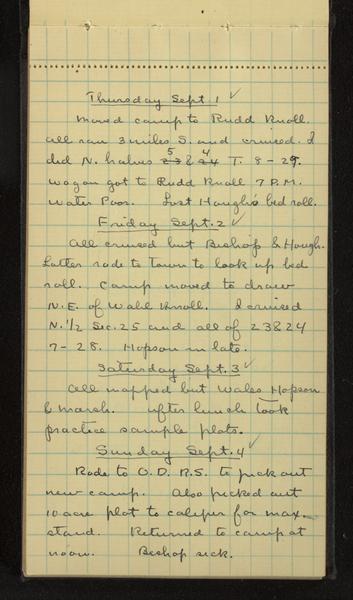 Thursday Sept. 1 ✓
Moved camp to Rudd Knoll.
All ran 3 miles S. and cruised. I
did N. halves 5 & 4 T. 8 - 29.
Wagon got to Rudd Knoll 7 P.M.
Water Poor. Lost Hough's bed roll.
Friday Sept. 2 ✓
All cruised but Bishop & Hough.
Latter rode to town to look up bed
roll. Camp moved to draw
N.E. of Wall Knoll. I cruised
N. 1/2 Sec. 25 and all of 23 & 24
7 - 28. Hopson in late.
Saturday Sept. 3 ✓
All mapped but Wales Hopson
& Marsh. After lunch took
practice sample plots.
Sunday Sept. 4 ✓
Rode to O.D. R.S. to pick out
new camp. Also picked out
10 acre plot to caliper for max.
stand. Returned to camp at
noon. Bishop sick.